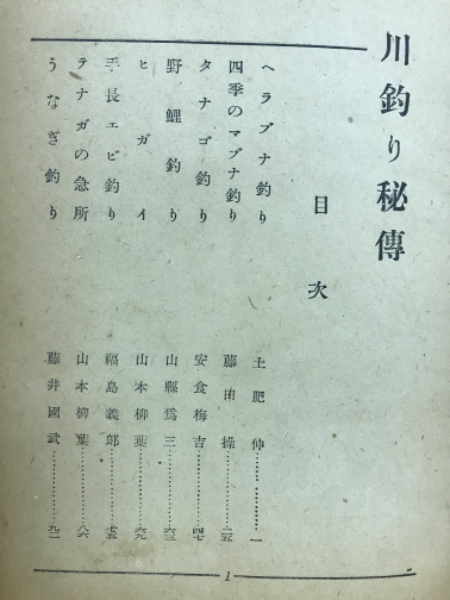 川釣り秘傳
目次
ヘラブナ釣り 土肥伸…………一
四季のマブナ釣り 藤田操…………二五
タナゴ釣り 安食梅吉…………四七
野鯉釣り 山縣爲三…………六三
ヒガイ 山本柳葉…………六九
手長エビ釣り 福島義郎…………七五
テナガの急所 山本柳葉…………八六
うなぎ釣り 藤井國武…………九一
1